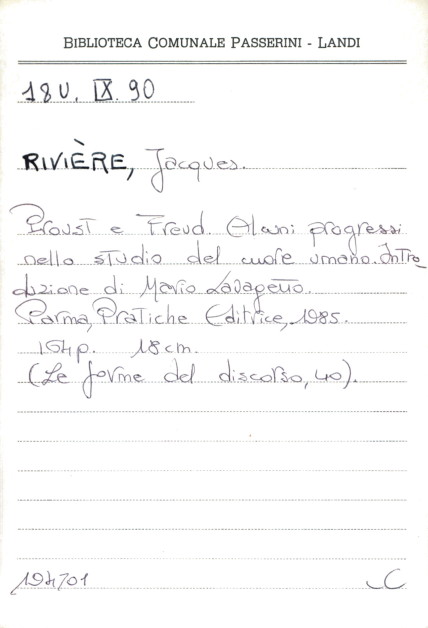 BIBLIOTECA COMUNALE PASSERINI - LANDI
18U. IX. 90
RIVIÈRE, Jacques.
Proust e Freud. Alcuni progressi
nello studio del cuore umano. Intro
duzione di Mario Lavagetto.
Parma, Pratiche Editrice, 1985.
154p. 18cm.
(Le forme del discorso, 40).
194701
C